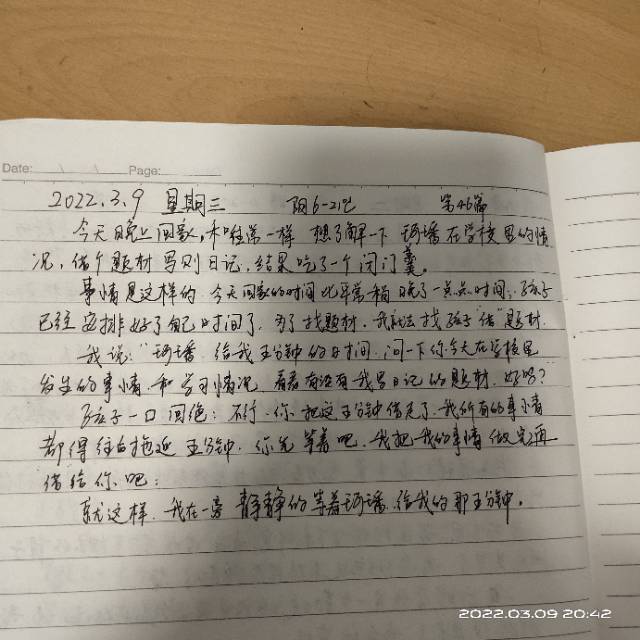 Date: Page:
2022.3.9 星期三 阴6-21℃ 第46篇
今天晚上回家,和往常一样 想了解一下 珂璠在学校里的情
况,借个题材 写则日记,结果吃了一个闭门羹。
事情是这样的 今天回家的时间比平常稍晚了一点点时间,孩子
已经安排好了自己时间了,为了找题材,我就去找孩子"借"题材.
我说:"珂璠 给我五分钟的时间,问一下你今天在学校里
发生的事情和学习情况,看看有没有我写日记的题材,好吗?
孩子一口回绝:不行,你把这五分钟借走了,我所有的事情
都得往后拖延五分钟,你先等着吧,我把我的事情做完再
借给你吧:
就这样,我在一旁静静的等着珂璠,给我的那五分钟。
2022.03.09 20:42